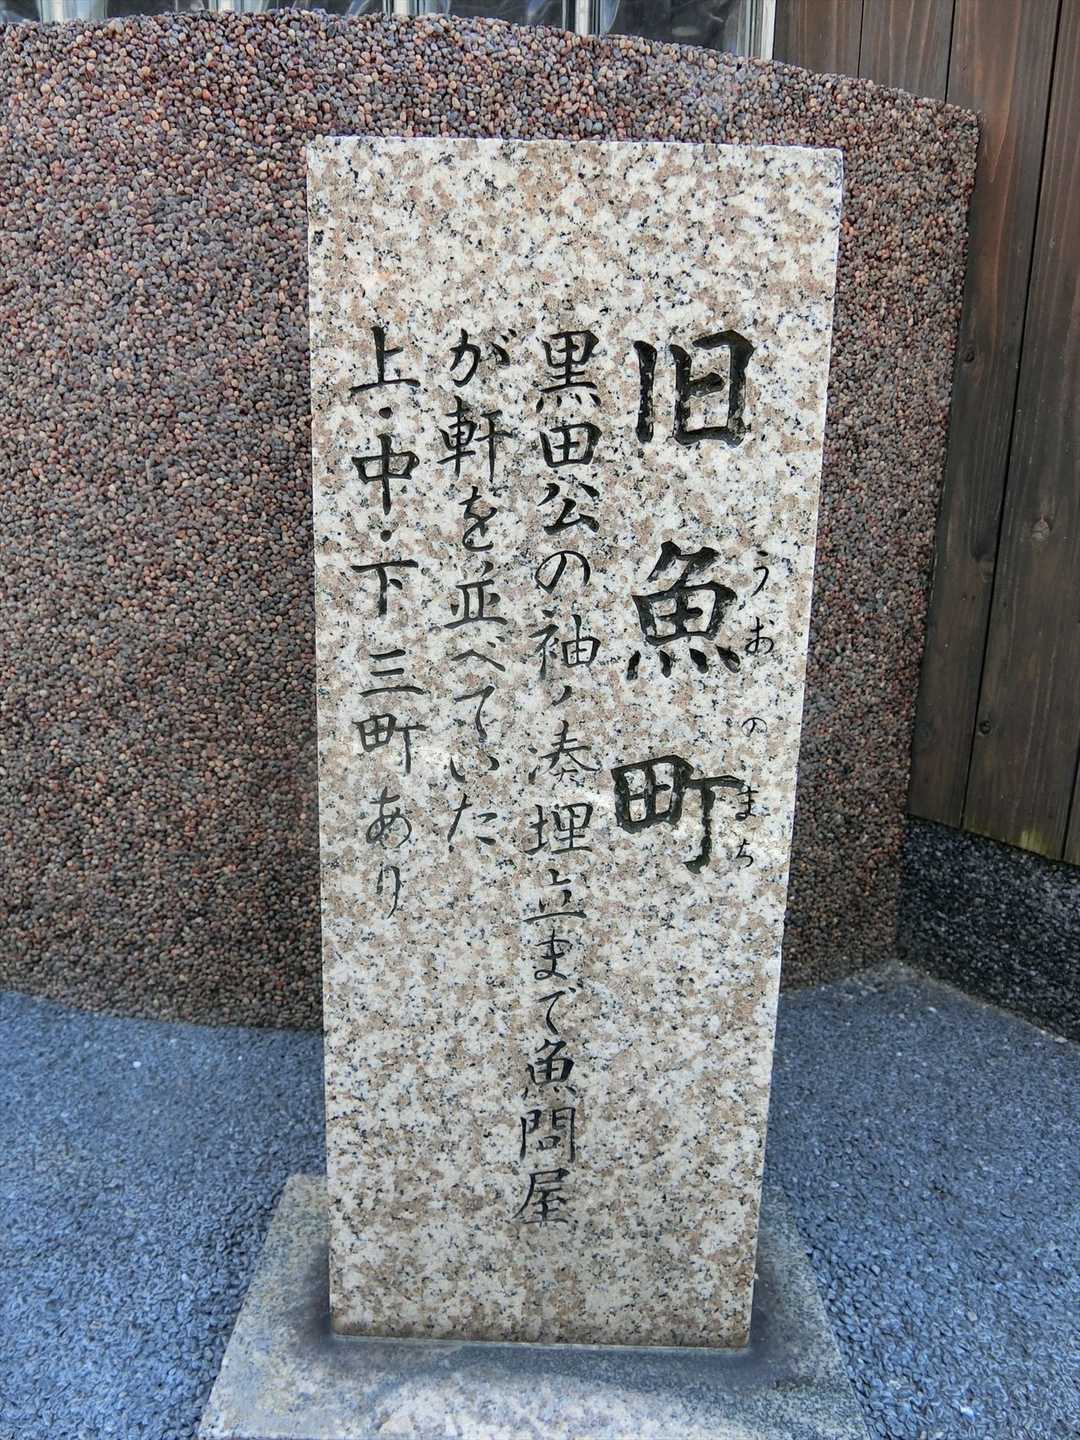 旧魚町
うおのまち
黒田公の袖ノ湊埋立まで魚問屋
が軒を並べていた
上・中・下 三町あり